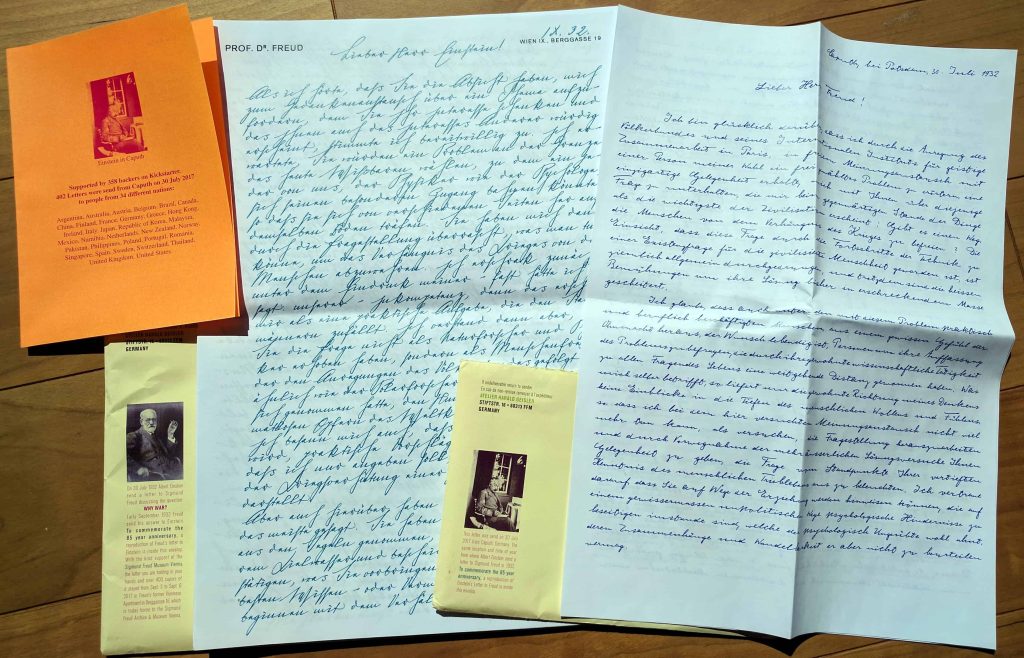 Einstein in Caputh
Supported by 358 backers on Kickstarter.
402 Letters were send from Caputh on 30 July 2017
to people from 34 different nations:
Argentina, Australia, Austria, Belgium, Brazil, Canada,
China, Finland, France, Germany, Greece, Hong Kong,
Ireland, Italy, Japan, Republic of Korea, Malaysia,
Mexico, Namibia, Netherlands, New Zealand, Norway,
Pakistan, Philippines, Poland, Portugal, Romania,
Singapore, Spain, Sweden, Switzerland, Thailand,
United Kingdom, United States.
PROF. DR. FREUD
IX. 32.
WIEN IX., BERGGASSE 19
Lieber Herr Einstein!
Als ich hörte, daß Sie die Absicht haben, mich
zum Gedankenaustausch über ein Thema aufzu
fordern, dem Sie Ihr Interesse schenken und
das Ihnen auch des Interesses Anderer würdig
erscheint, stimmte ich bereitwillig zu. Ich er
wartete, Sie würden ein Problem an der Grenze
des heute Wißbaren wählen, zu dem ein Je
der von uns, der Physiker wie der Psychologe
sich seinen besonderen Zugang bahnen könnte
so daß sie sich von verschiedenen Seiten her auf
demselben Boden träfen. Sie haben mich
durch die Fragestellung überrascht, was man tun
könne, um das Verhängnis des Krieges von den
Menschen abzuwehren. Ich erschrak zunächst
unter dem Eindruck meiner - fast hätte ich
gesagt: unserer - Inkompetenz, denn das erschien
mir als eine praktische Aufgabe, die den Sta
männern zufällt. Ich verstand dann aber,
Sie die Frage nicht als Naturforscher und
ker erhoben haben, sondern als Menschenfreund
der den Anregungen des Völ
ähnlich wie der Polarforscher
sich genommen hatte, den Hun
matlosen Opfern des Weltk
Ich besann mich auch, daß
wird, praktische Vorschläge
daß ich nur angeben soll
der Kriegsverhütung einer
darstellt.
Aber auch hierüber haben
das meiste gesagt. Sie haben
aus den Segeln genommen,
rem Kielwasser und bescheide
stätigen, was Sie vorbringen
besten Wissen - oder Vermu
beginnen mit dem Verhäl
Caputh bei Potsdam, 30. Juli 1932
Lieber Herr Freud!
Ich bin glücklich darüber, dass ich durch die Anregung des
Völkerbundes und seines Internationalen Instituts für geistige
Zusammenarbeit in Paris, in freiem Meinungsaustausch mit
einer Person meiner Wahl ein frei gewähltes Problem zu erörtern, eine
einzigartige Gelegenheit erhalte, mich mit Ihnen über diejenige
Frage zu unterhalten, die mir beim gegenwärtigen Stande der Dinge
als die wichtigste der Zivilisation erscheint: Gibt es einen Weg,
die Menschen von dem Verhängnis des Krieges zu befreien? Die
Einsicht, dass diese Frage durch die Fortschritte der Technik zu
einer Existenzfrage für die zivilisierte Menschheit geworden ist, ist
ziemlich allgemein durchgedrungen, und trotzdem sind die heissen
Bemühungen um ihre Lösung bisher in erschreckendem Masse
gescheitert.
Ich glaube, dass auch unter den mit diesem Problem praktisch
und beruflich beschäftigten Menschen aus einem gewissen Gefühl der
Ohnmacht heraus, der Wunsch lebendig ist, Personen um ihre Auffassung
des Problems zu befragen, die durch ihre gewohnte wissenschaftliche Tätigkeit
zu allen Fragen des Lebens eine weitgehende Distanz genommen haben. Was
mich selber betrifft, so liefert mir die gewohnte Richtung meines Denkens
keine Einblicke in die Tiefen des menschlichen Wollens und Fühlens,
so dass ich bei dem hier versuchten Meinungsaustausch nicht viel
mehr tun kann, als versuchen, die Fragestellung herauszuarbeiten
und durch Vorwegnahme der mehr äusserlichen Lösungsversuche Ihnen
Gelegenheit zu geben, die Frage vom Standpunkte Ihrer vertieften
Kenntnis des menschlichen Trieblebens aus zu beleuchten. Ich vertraue
darauf, dass Sie auf Wege der Erziehung werden hinweisen können, die auf
einem gewissermassen unpolitischen Wege psychologische Hindernisse zu
beseitigen imstande sind, welche der psychologisch Ungeübte wohl ahnt,
deren Zusammenhänge und Wandelbarkeit er aber nicht zu beurteilen
vermag.
ATELIER HARALD GEISLER
STIFTSTR. 18 • 60313 FFM
GERMANY
On 30 July 1932 Albert Einstein
send a letter to Sigmund
Freud discussing the question:
WHY WAR?
Early September 1932 Freud
send his answer to Einstein.
To commemorate the
85 year anniversary, a
reproduction of Freud's letter to
Einstein is inside this envelop.
With the kind support of the
Sigmund Freud Museum Vienna,
the letter you are holding in your
hands and
Apartment in Berggasse 19, which
is today home to the Sigmund
Freud Archive & Museum Vienna.
If undeliverable return to sender
En cas de non-remise renvoyer à l'expéditeur
ATELIER HARALD GEISLER
STIFTSTR. 18 • 60313 FFM
GERMANY
This letter was send on 30 July
2017 from Caputh Germany, the
same location and time of year
from where Albert Einstein send
a letter to Sigmund Freud in 1932.
To commemorate the 85 year
anniversary, a reproduction of
Einstein's Letter to Freud is inside
this envelop.